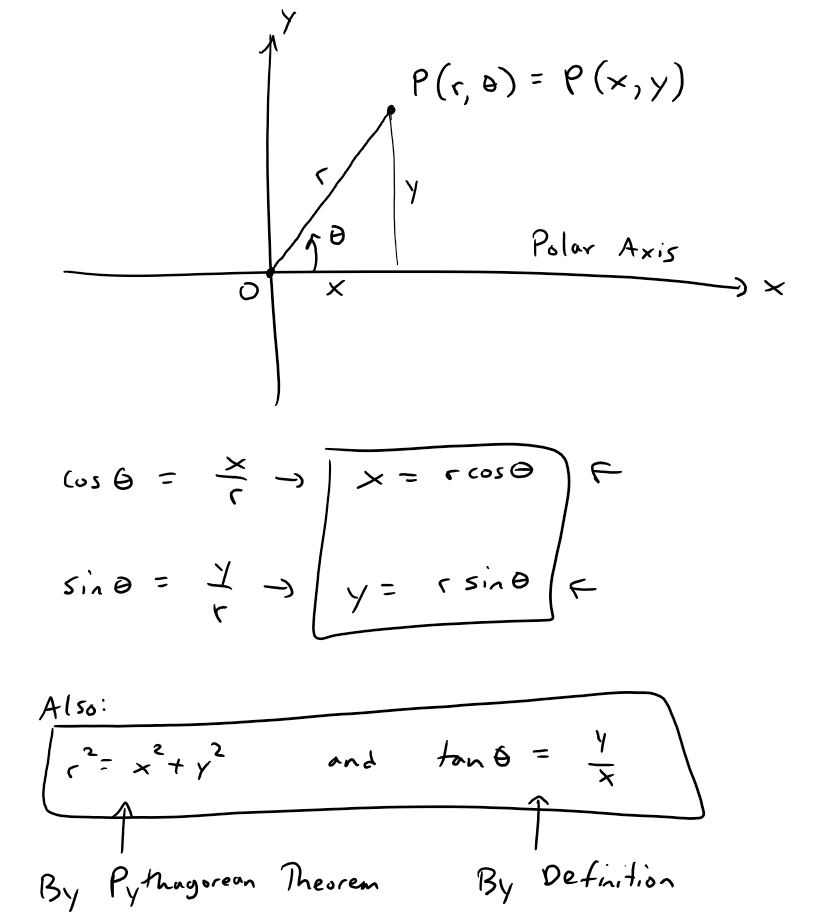 y
P(r, θ) = P(x, y)
r
y
θ
Polar Axis
O
x
x
cos θ = x/r → x = r cos θ ←
sin θ = y/r → y = r sin θ ←
Also:
r² = x² + y² and tan θ = y/x
By Pythagorean Theorem By Definition